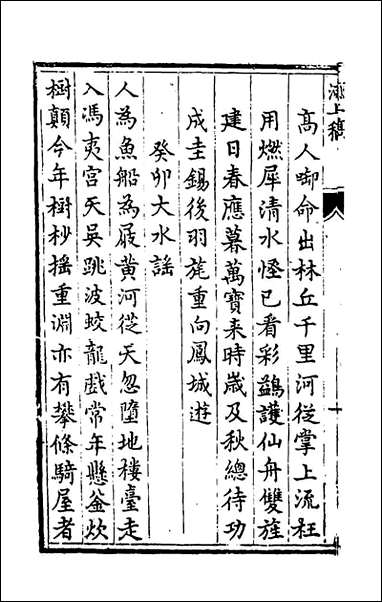 高人啣命出林丘千里河從掌上流枉
用燃犀清水怪已看彩鷁護仙舟雙旌
建日春應暮萬寶來時歲及秋總待功
成圭錫後羽旄重向鳳城遊
癸卯大水謠
人為魚船為屐黄河從天忽墮地樓臺走
入馮夷宮天吳跳波蛟龍戲常年懸釜炊
樹顛今年樹杪搖重淵亦有攀條騎屋者